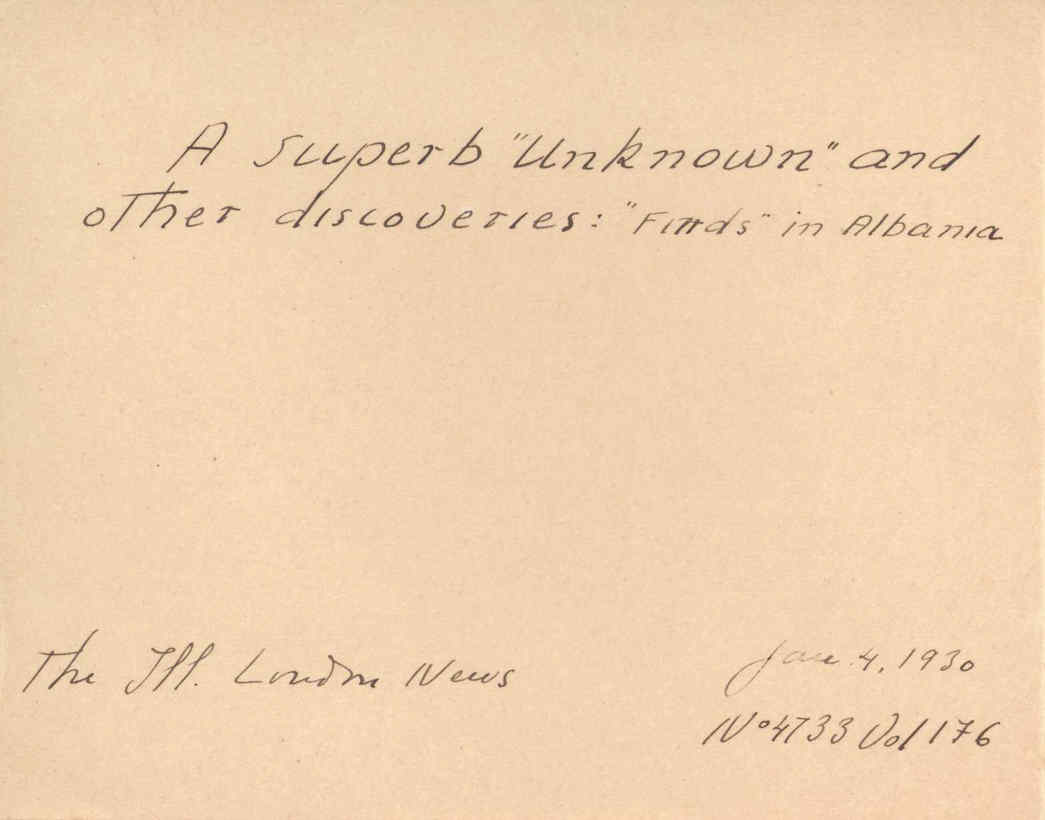 A superb "Unknown" and
other discoveries: "Finds" in Albania
The Ill. London News
Jan. 4, 1930
No 4733 Vol 176